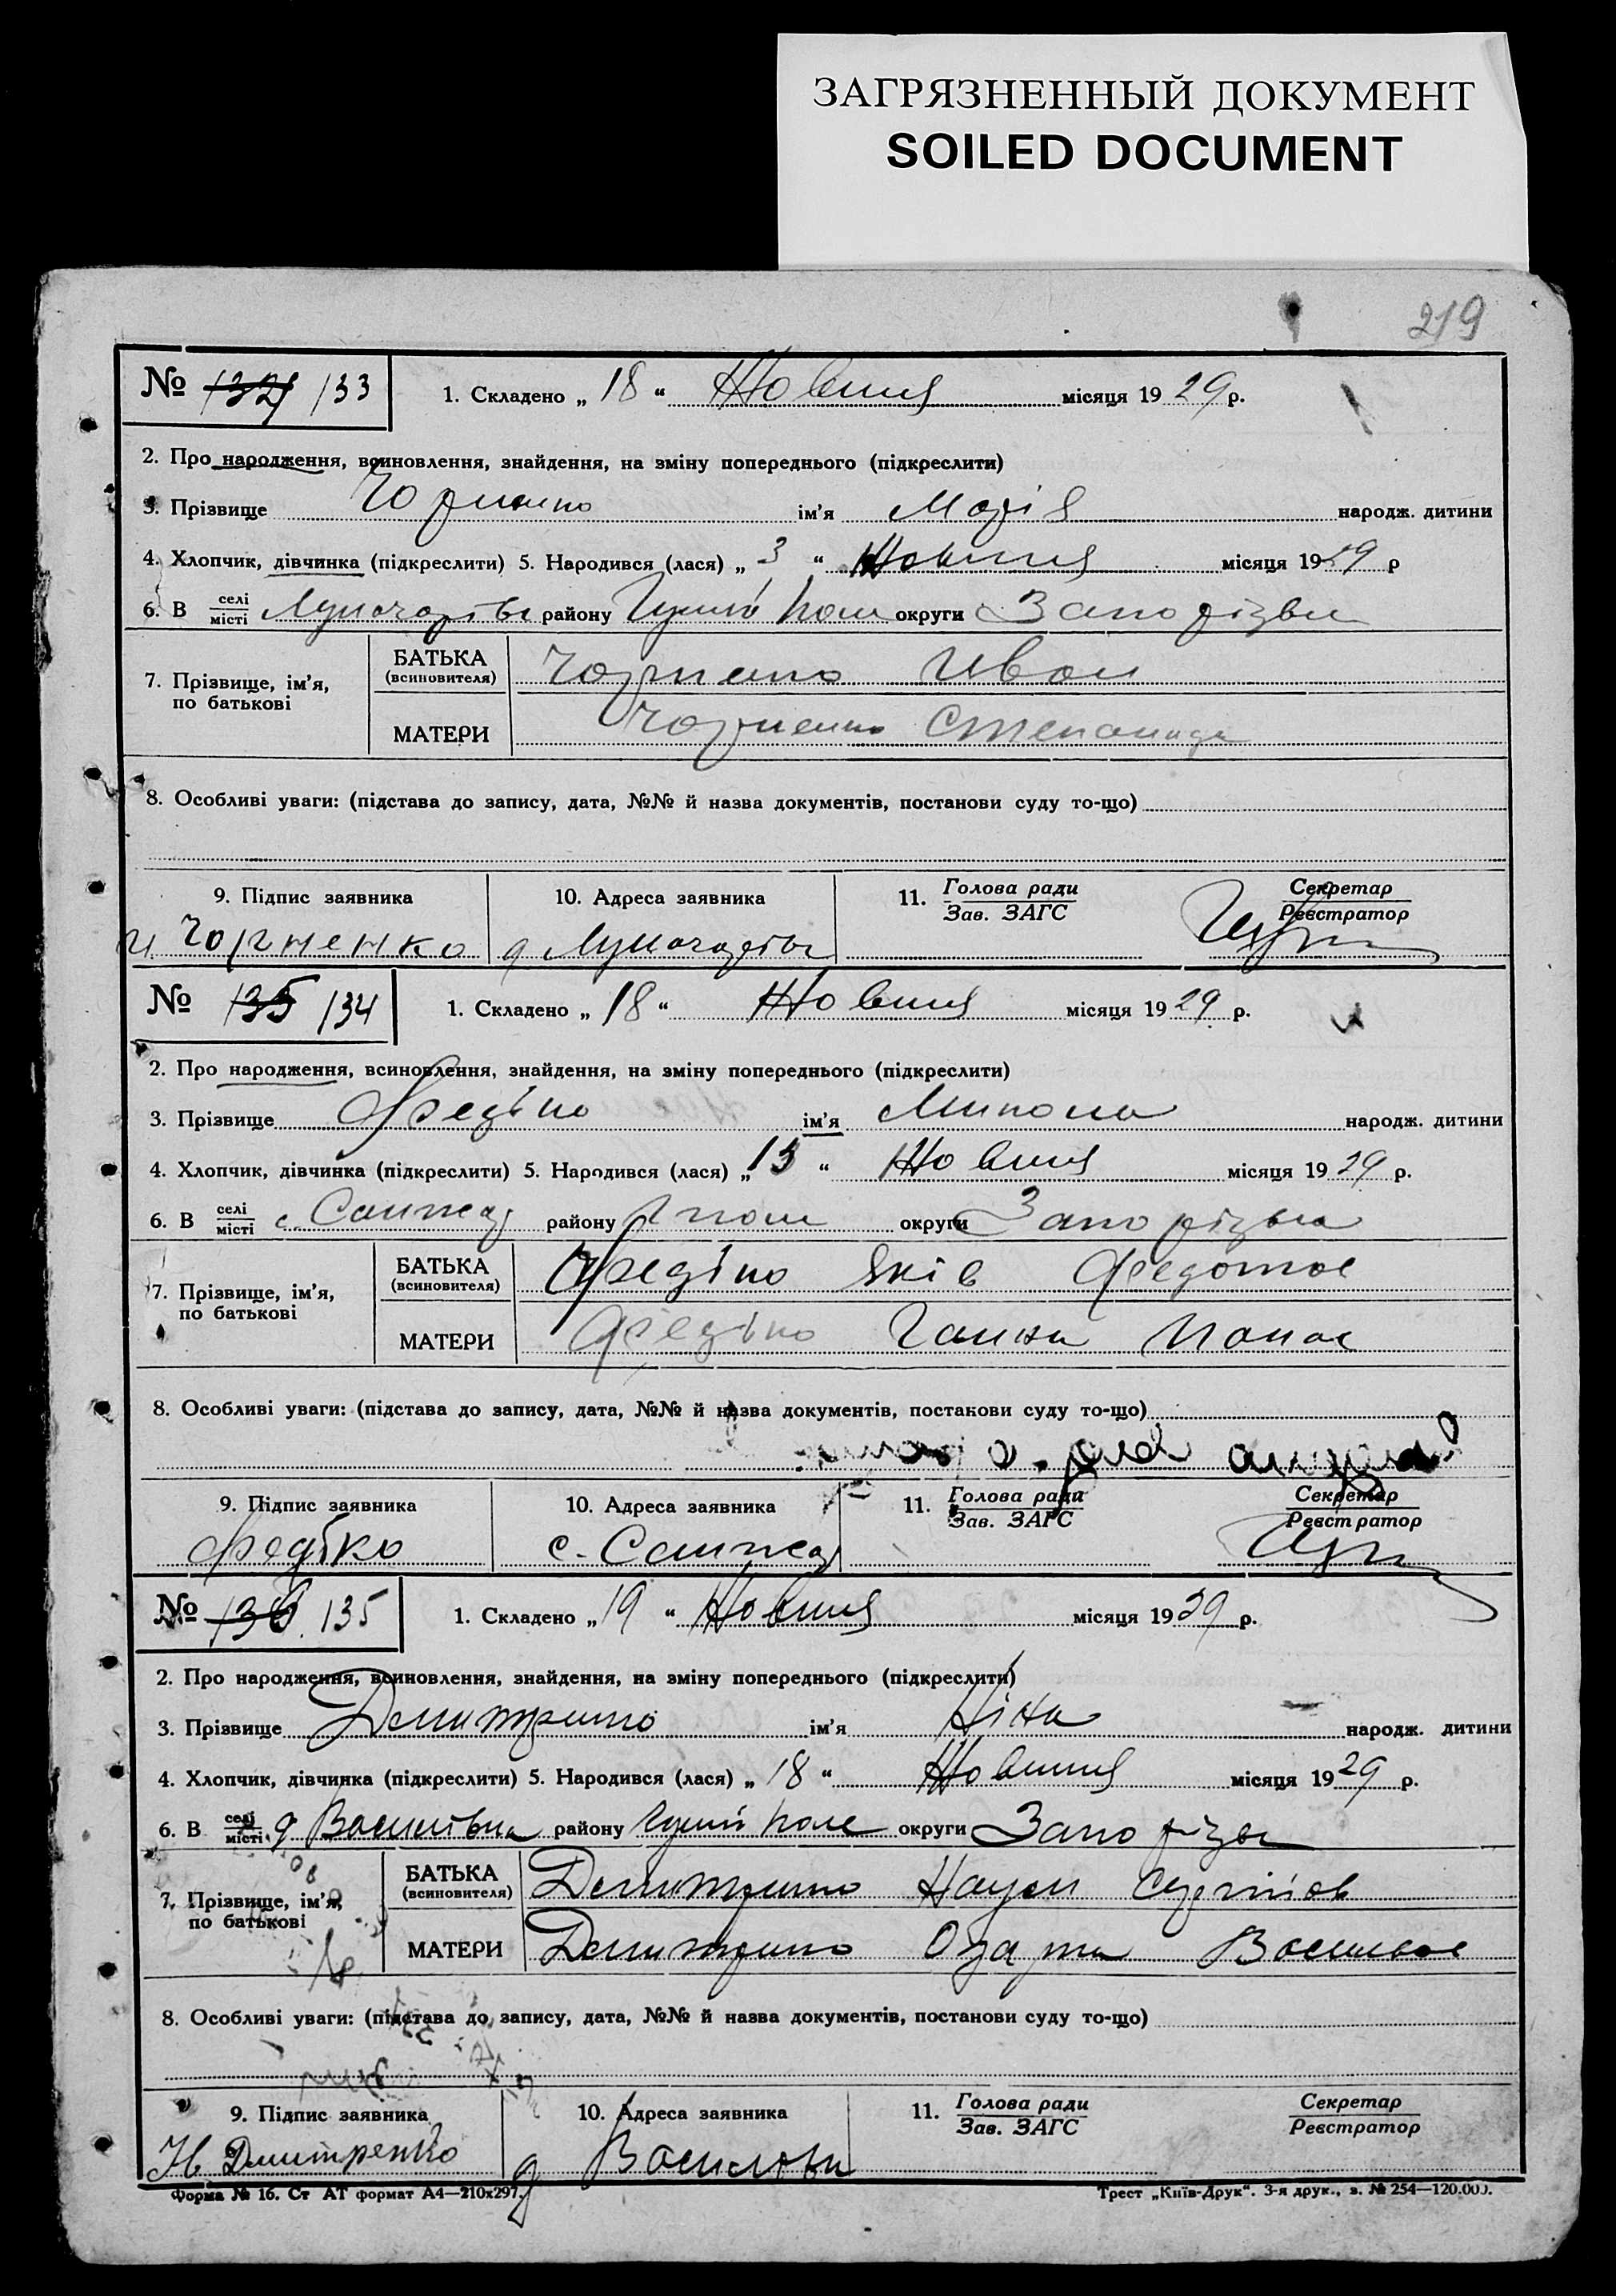 ЗАГРЯЗНЕННЫЙ ДОКУМЕНТ
SOILED DOCUMENT
219
№ 133
1. Складено „ 18 “ Жовтня місяця 1929 р.
2. Про народження, всиновлення, знайдення, на зміну попереднього (підкреслити)
3. Прізвище Чорненко ім'я Марія народж. дитини
4. Хлопчик, дівчинка (підкреслити) 5. Народився (лася) „ 3 “ Жовтня місяця 1929 р
6. В селі/місті району Гуляй поле округи Запорізьк
7. Прізвище, ім'я, по батькові
БАТЬКА (всиновителя) Чорненко Иван
МАТЕРИ Чорненко Степанида
8. Особливі уваги: (підстава до запису, дата, №№ й назва документів, постанови суду то-що)
9. Підпис заявника
10. Адреса заявника
11. Голова ради / Зав. ЗАГС
Секретар / Реєстратор
и Чорненко
№ 135 134
1. Складено „ 18 “ Жовтня місяця 1929 р.
2. Про народження, всиновлення, знайдення, на зміну попереднього (підкреслити)
3. Прізвище Федько ім'я Микола народж. дитини
4. Хлопчик, дівчинка (підкреслити) 5. Народився (лася) „ 13 “ Жовтня місяця 1929 р.
6. В селі/місті с. Санжар району Г поле округи Запорізька
7. Прізвище, ім'я, по батькові
БАТЬКА (всиновителя) Федько Яків Федотов
МАТЕРИ Федько Ганна Панас
8. Особливі уваги: (підстава до запису, дата, №№ й назва документів, постанови суду то-що)
9. Підпис заявника
10. Адреса заявника
11. Голова ради / Зав. ЗАГС
Секретар / Реєстратор
Федько
с. Санжар
№ 136 135
1. Складено „ 19 “ Жовтня місяця 1929 р.
2. Про народження, всиновлення, знайдення, на зміну попереднього (підкреслити)
3. Прізвище Дмитренко ім'я Ніна народж. дитини
4. Хлопчик, дівчинка (підкреслити) 5. Народився (лася) „ 18 “ Жовтня місяця 1929 р.
6. В селі/місті д Василівка району Гуляй поле округи Запорізьк
7. Прізвище, ім'я, по батькові
БАТЬКА (всиновителя) Дмитренко Наум
МАТЕРИ Дмитренко Одарка Васильов
8. Особливі уваги: (підстава до запису, дата, №№ й назва документів, постанови суду то-що)
9. Підпис заявника
10. Адреса заявника
11. Голова ради / Зав. ЗАГС
Секретар / Реєстратор
Н. Дмитренко
д Василівка
Форма № 16. Ст АТ формат А4—210х297.
Трест „Київ-Друк“. 3-я друк., з. № 254—120.000.